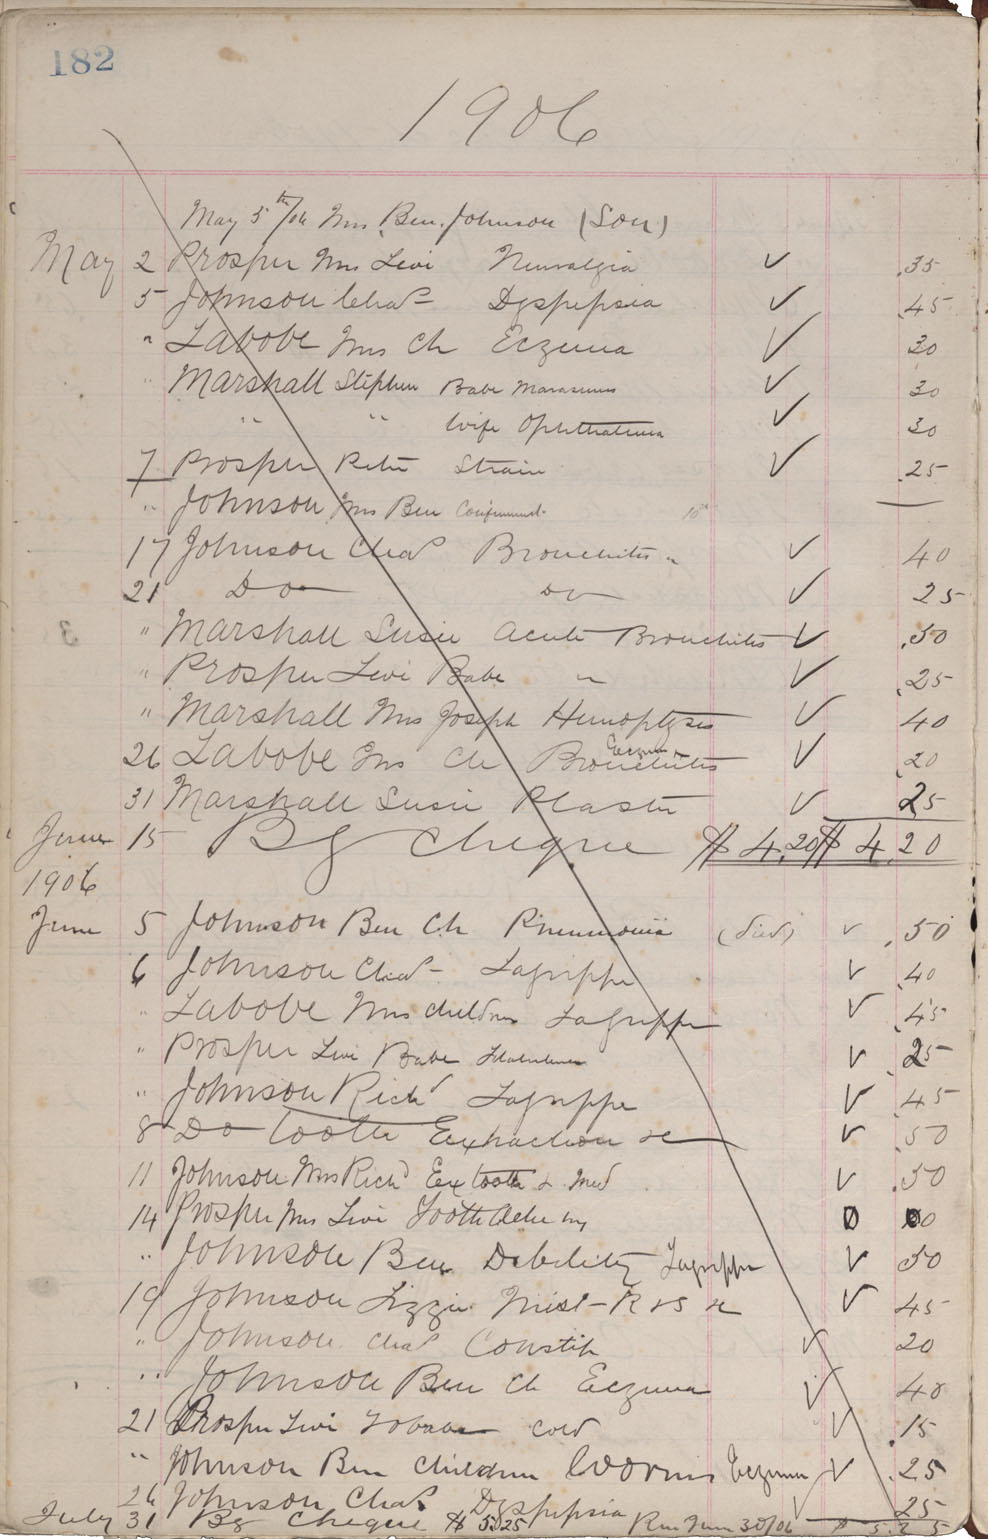 182
1906
May 5th/06 Mrs Ben. Johnson (Son)
May 2 Prosper Mrs Levi Neuralgia ✓ .35
5 Johnson Chas Dyspepsia ✓ .45
" Labobe Mrs Ch Eczema ✓ 30
" Marshall Stephen Babe Marasmus ✓ 30
" " Wife Ophthalmia ✓ 30
7 Prosper Peter Strain ✓ .25
" Johnson Mrs Ben Confinement 10 —
17 Johnson Chas Bronchitis " ✓ 40
21 Do do ✓ 25
" Marshall Susie Acute Bronchitis ✓ .50
" Prosper Levi Babe " ✓ .25
" Marshall Mrs Joseph Hemoptysis ✓ 40
26 Labobe Mrs Ch Eczema + Bronchitis ✓ .20
31 Marshall Susie Plaster ✓ 25
June 15 By Cheque $4.20 $4.20
1906
June 5 Johnson Ben Ch Pneumonia (died) ✓ .50
6 Johnson Chas - Lagrippe ✓ .40
" Labobe Mrs children Lagrippe ✓ .45
" Prosper Levi Babe ✓ .25
" Johnson Richd Lagrippe ✓ .45
8 Do tooth Extraction &c ✓ .50
11 Johnson Mrs Richd Ex tooth & Med ✓ .50
14 Prosper Mrs Levi ToothAche 0 00
" Johnson Ben Debility Lagrippe ✓ 50
19 Johnson Lizzie Mist - R & S &c ✓ 45
" Johnson Chas Constip ✓ 20
" Johnson Ben Ch Eczema ✓ 40
21 Prosper Levi cold ✓ .15
" Johnson Ben Children Worms Eczema ✓ .25
26 Johnson Chas Dyspepsia ✓ 25
July 31 By Cheque $5.25 June 30/06 $ 5.25